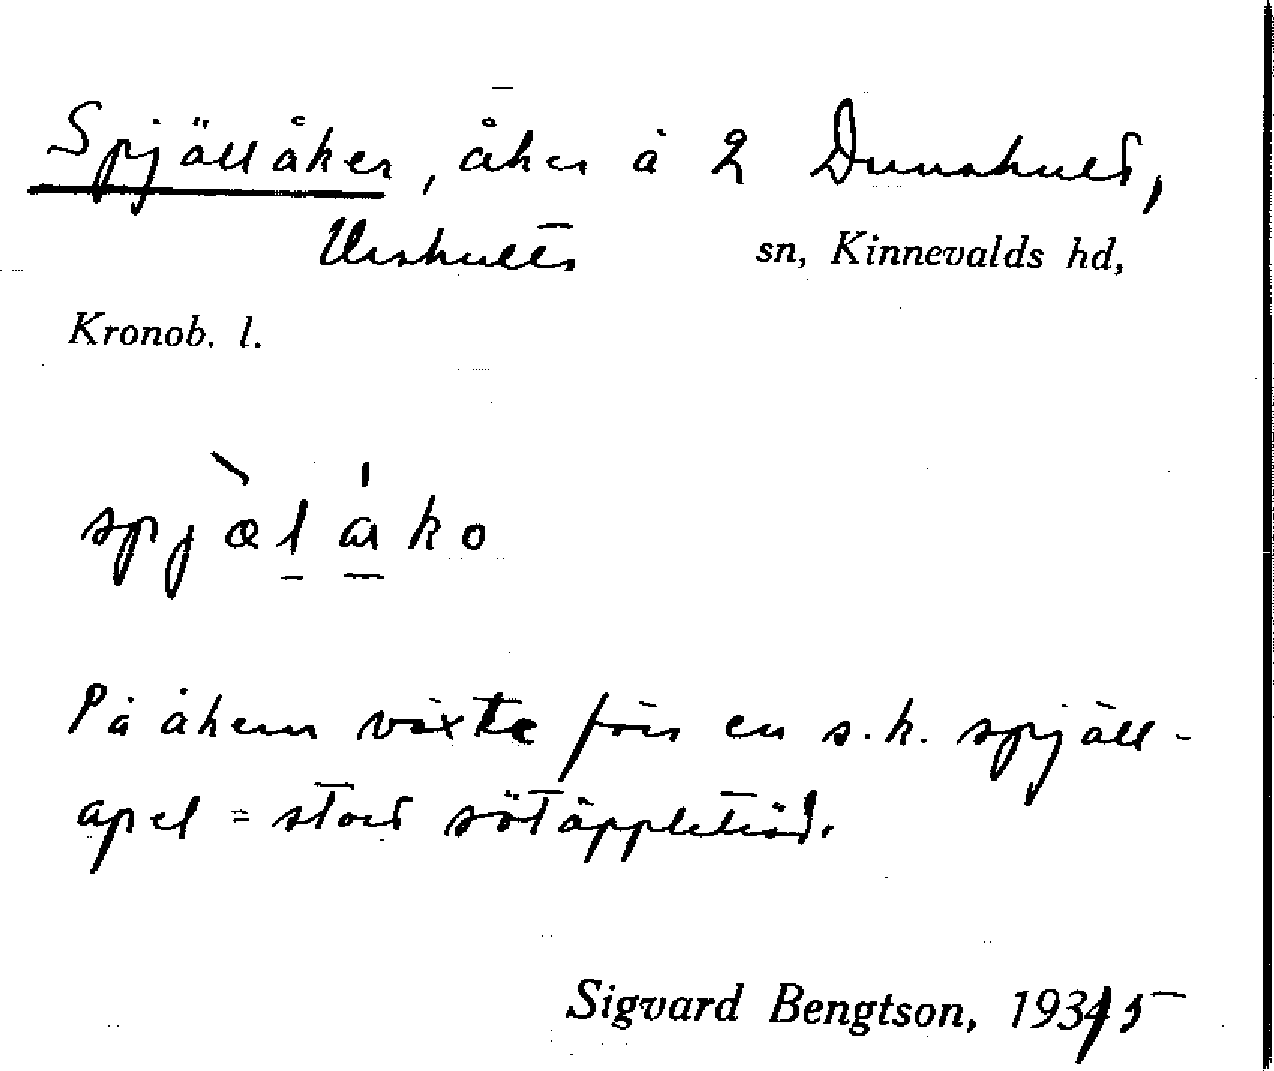 Spjällåker, åker å 2 Dunshult,
Urshults sn, Kinnevalds hd,
Kronob. l.
spjælåko
På åkern växte förr en s.k. spjäll-
apel = stort sötäppleträd.
Sigvard Bengtson, 1935